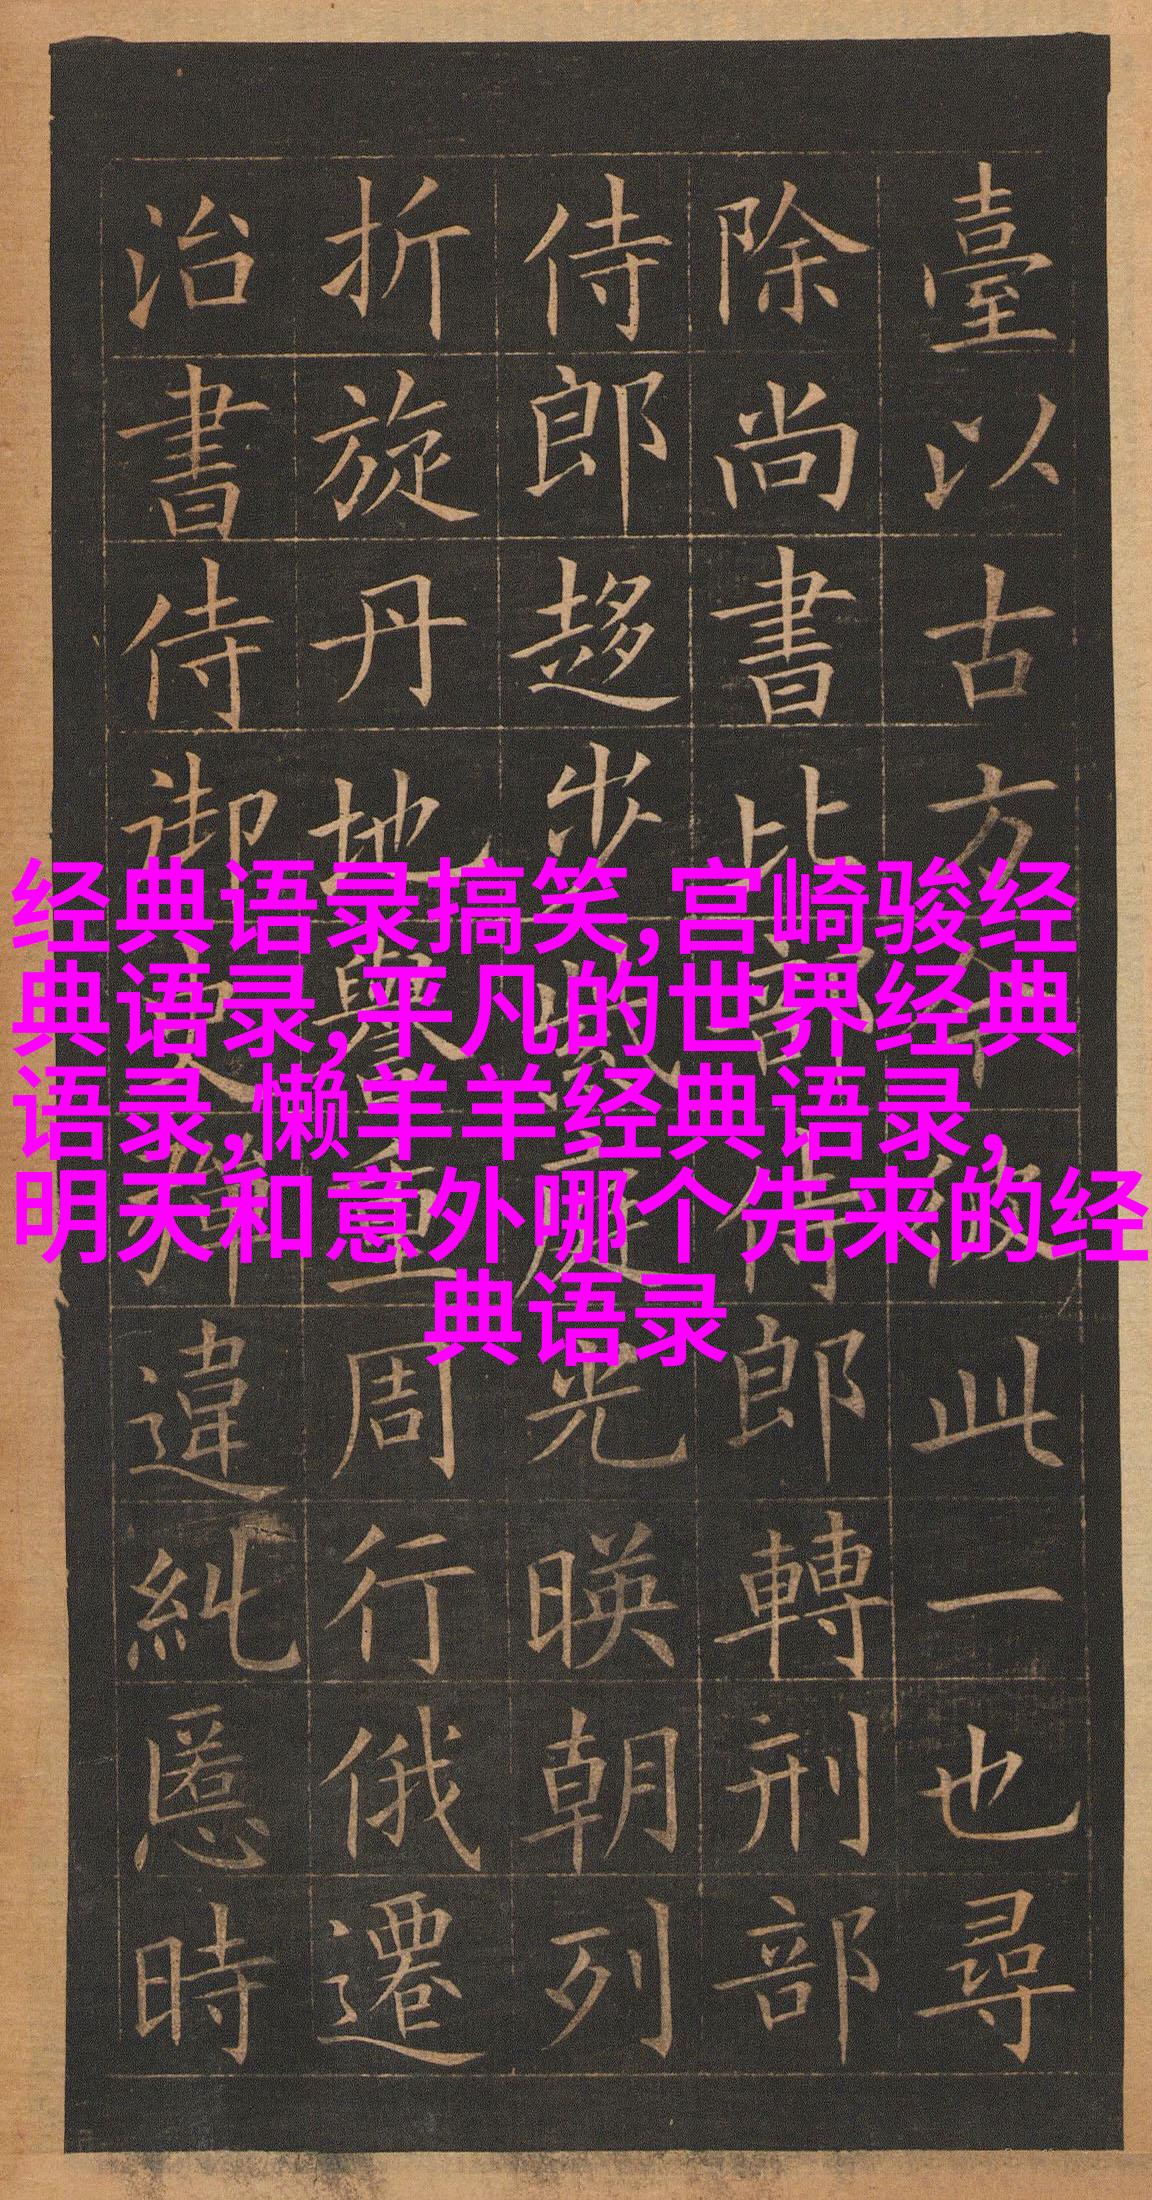 臺以古方今彼此一也尋
除尚書比部侍郎轉刑部
侍郎趍步紫庭光暎朝列
折旋丹地譽重周行俄遷
治書侍御史彈違糺慝時
经典语录搞笑,宫崎骏经
典语录,平凡的世界经典
语录,懒羊羊经典语录,
明天和意外哪个先来的经
典语录